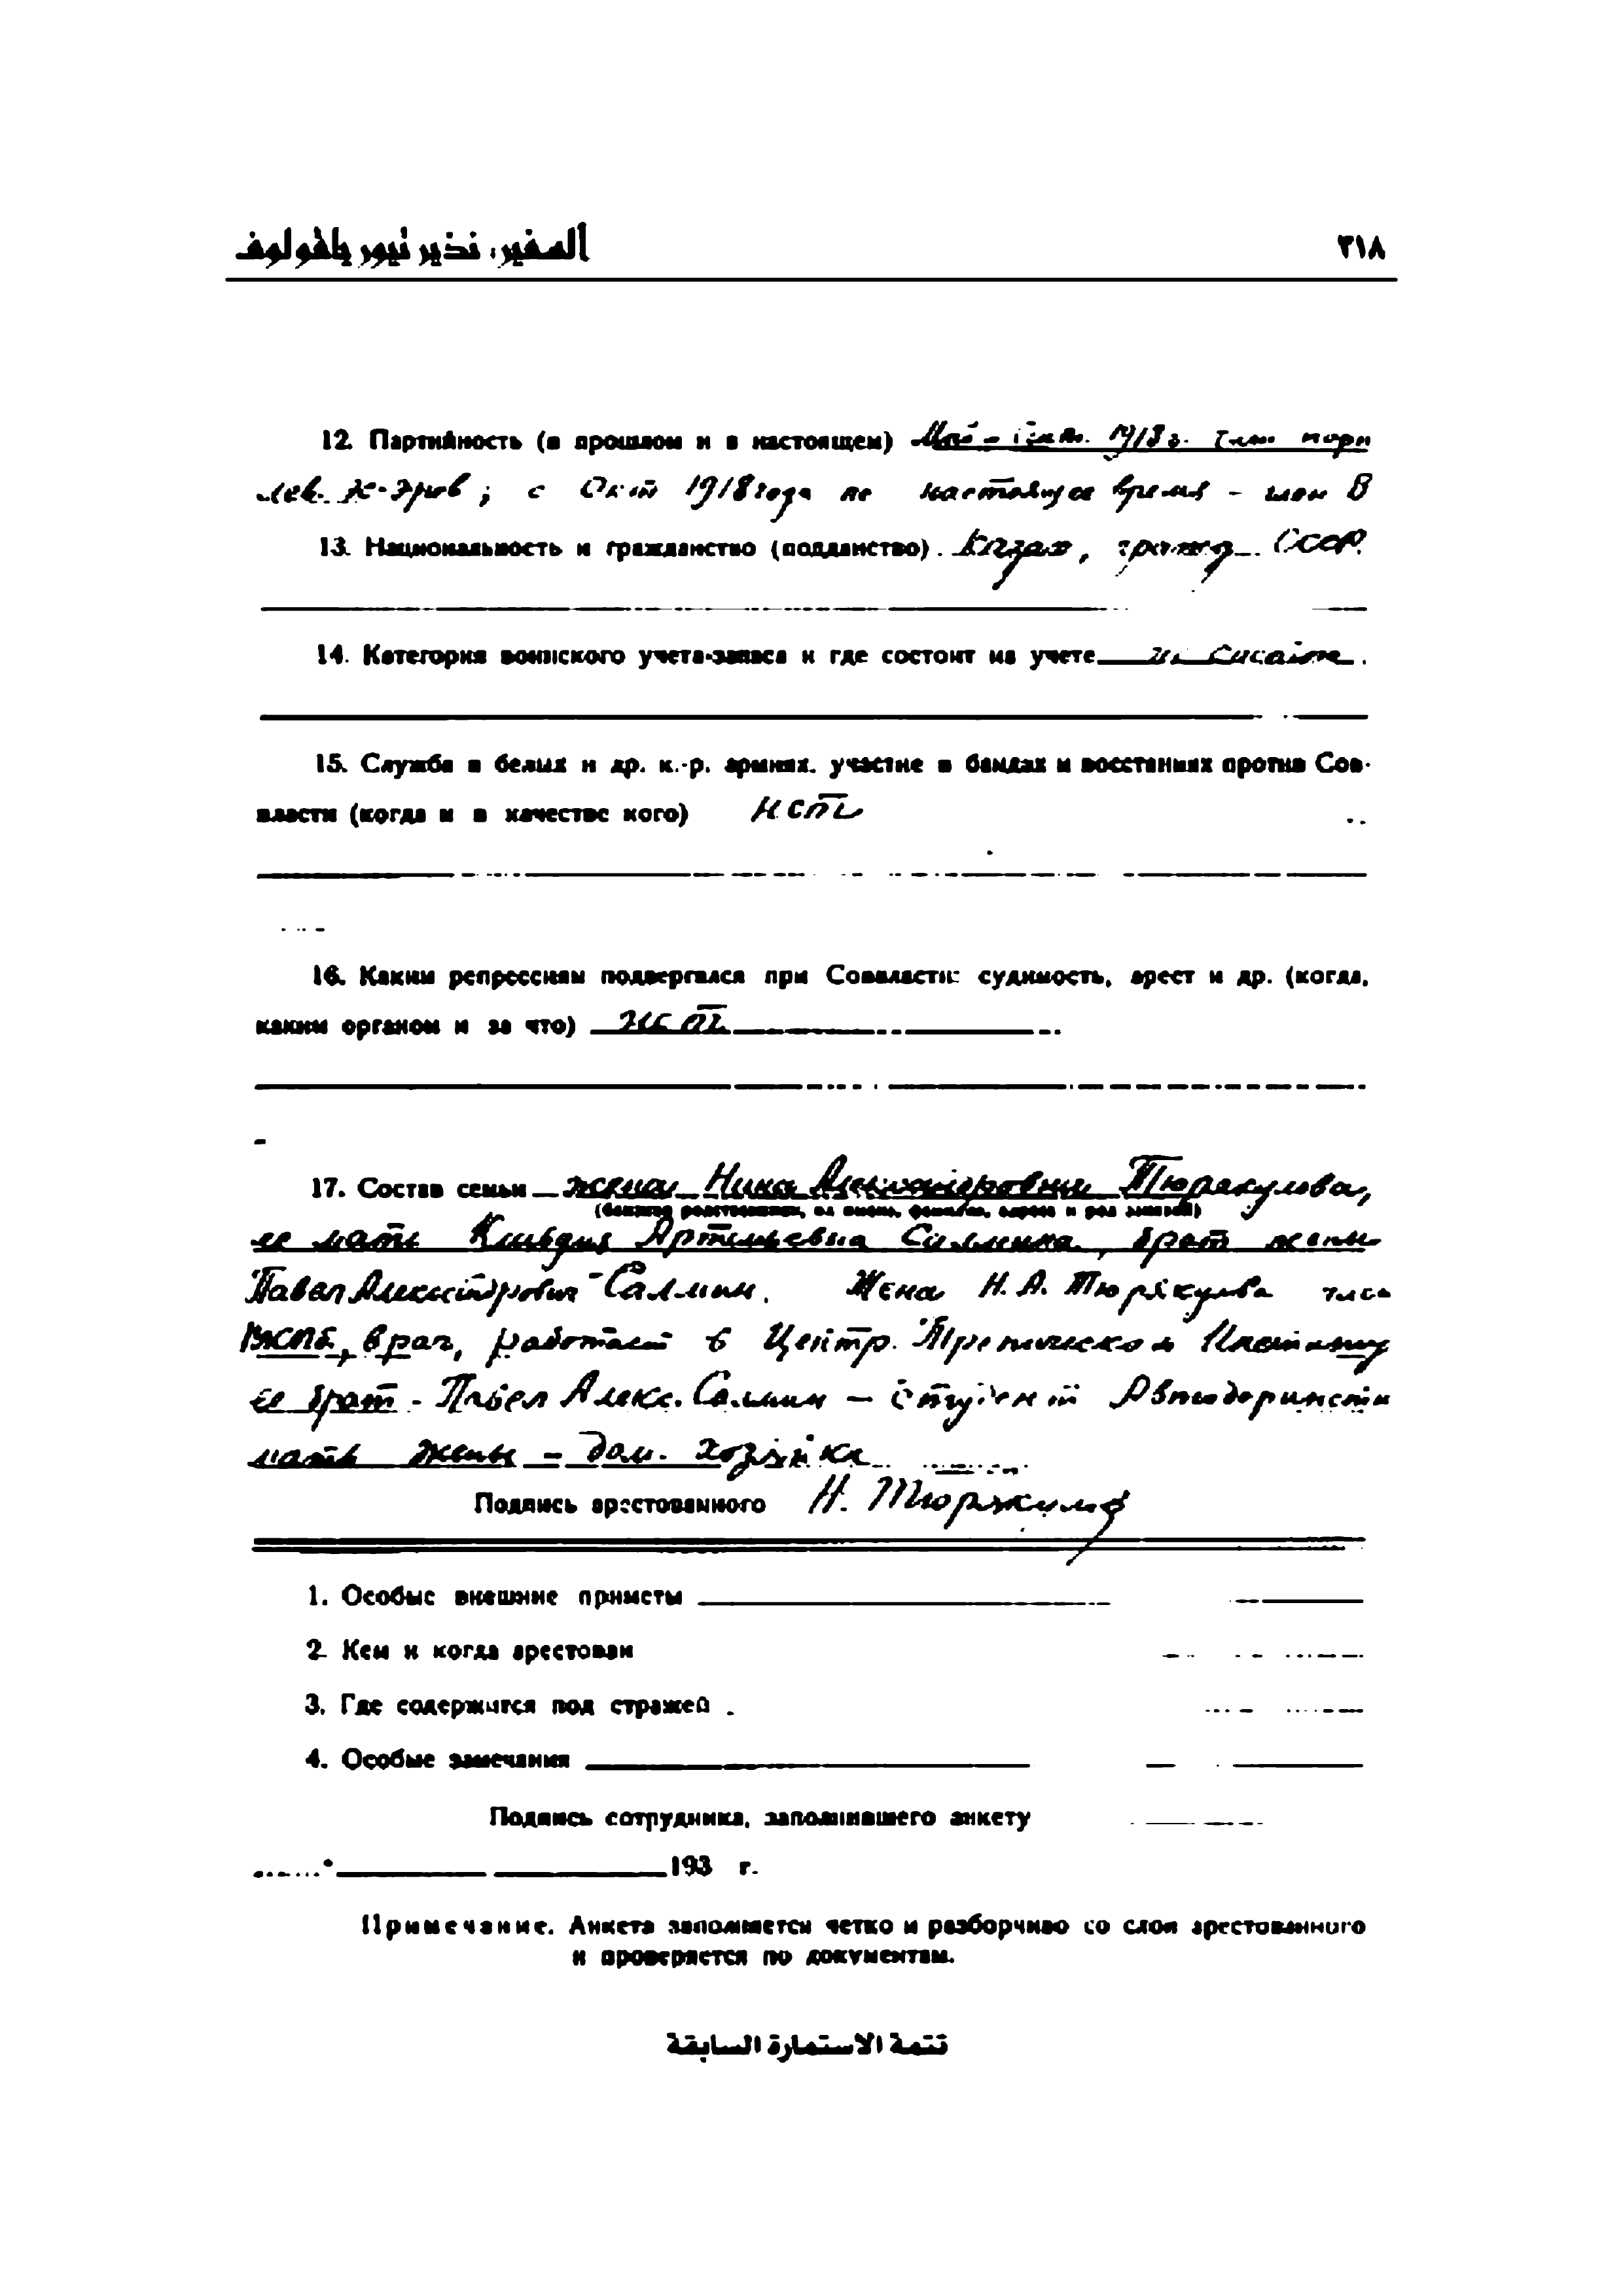 السفير: نذير تيور ياقولوف ٣١٨
12. Партийность (в прошлом и в настоящем) Май - Окт. 1918 г. член парт
лев. эс-эров; с Окт 1918 года по настоящее время - член В
13. Национальность и гражданство (подданство). Казах, гражд. СССР.
14. Категория воинского учета-запаса и где состоит на учете не состою.
15. Служба в белых и др. к.-р. армиях. участие в бандах и восстаниях против Сов-
власти (когда и в качестве кого) нет
16. Каким репрессиям подвергался при Соввласти: судимость, арест и др. (когда,
каким органом и за что) нет
17. Состав семьи жена Нина Александровна Тюрякулова,
(близкие родственники, их имена, фамилии, адреса и род занятий)
ее мать Артемьевна Саллина, брат жены
Павел Александрович Саллин. Жена Н. А. Тюрякулова член
врач, работает в Центр. Институ
ее брат - Павел Алекс. Саллин - студент Автодоринсти
мать жены - дом. хозяйка
Подпись арестованного Н. Тюрякулов
1. Особые внешние приметы
2. Кем и когда арестован
3. Где содержится под стражей
4. Особые замечания
Подпись сотрудника, заполнившего анкету
193 г.
Примечание. Анкета заполняется четко и разборчиво со слов арестованного
и проверяется по документам.
تتمة الاستمارة السابقة